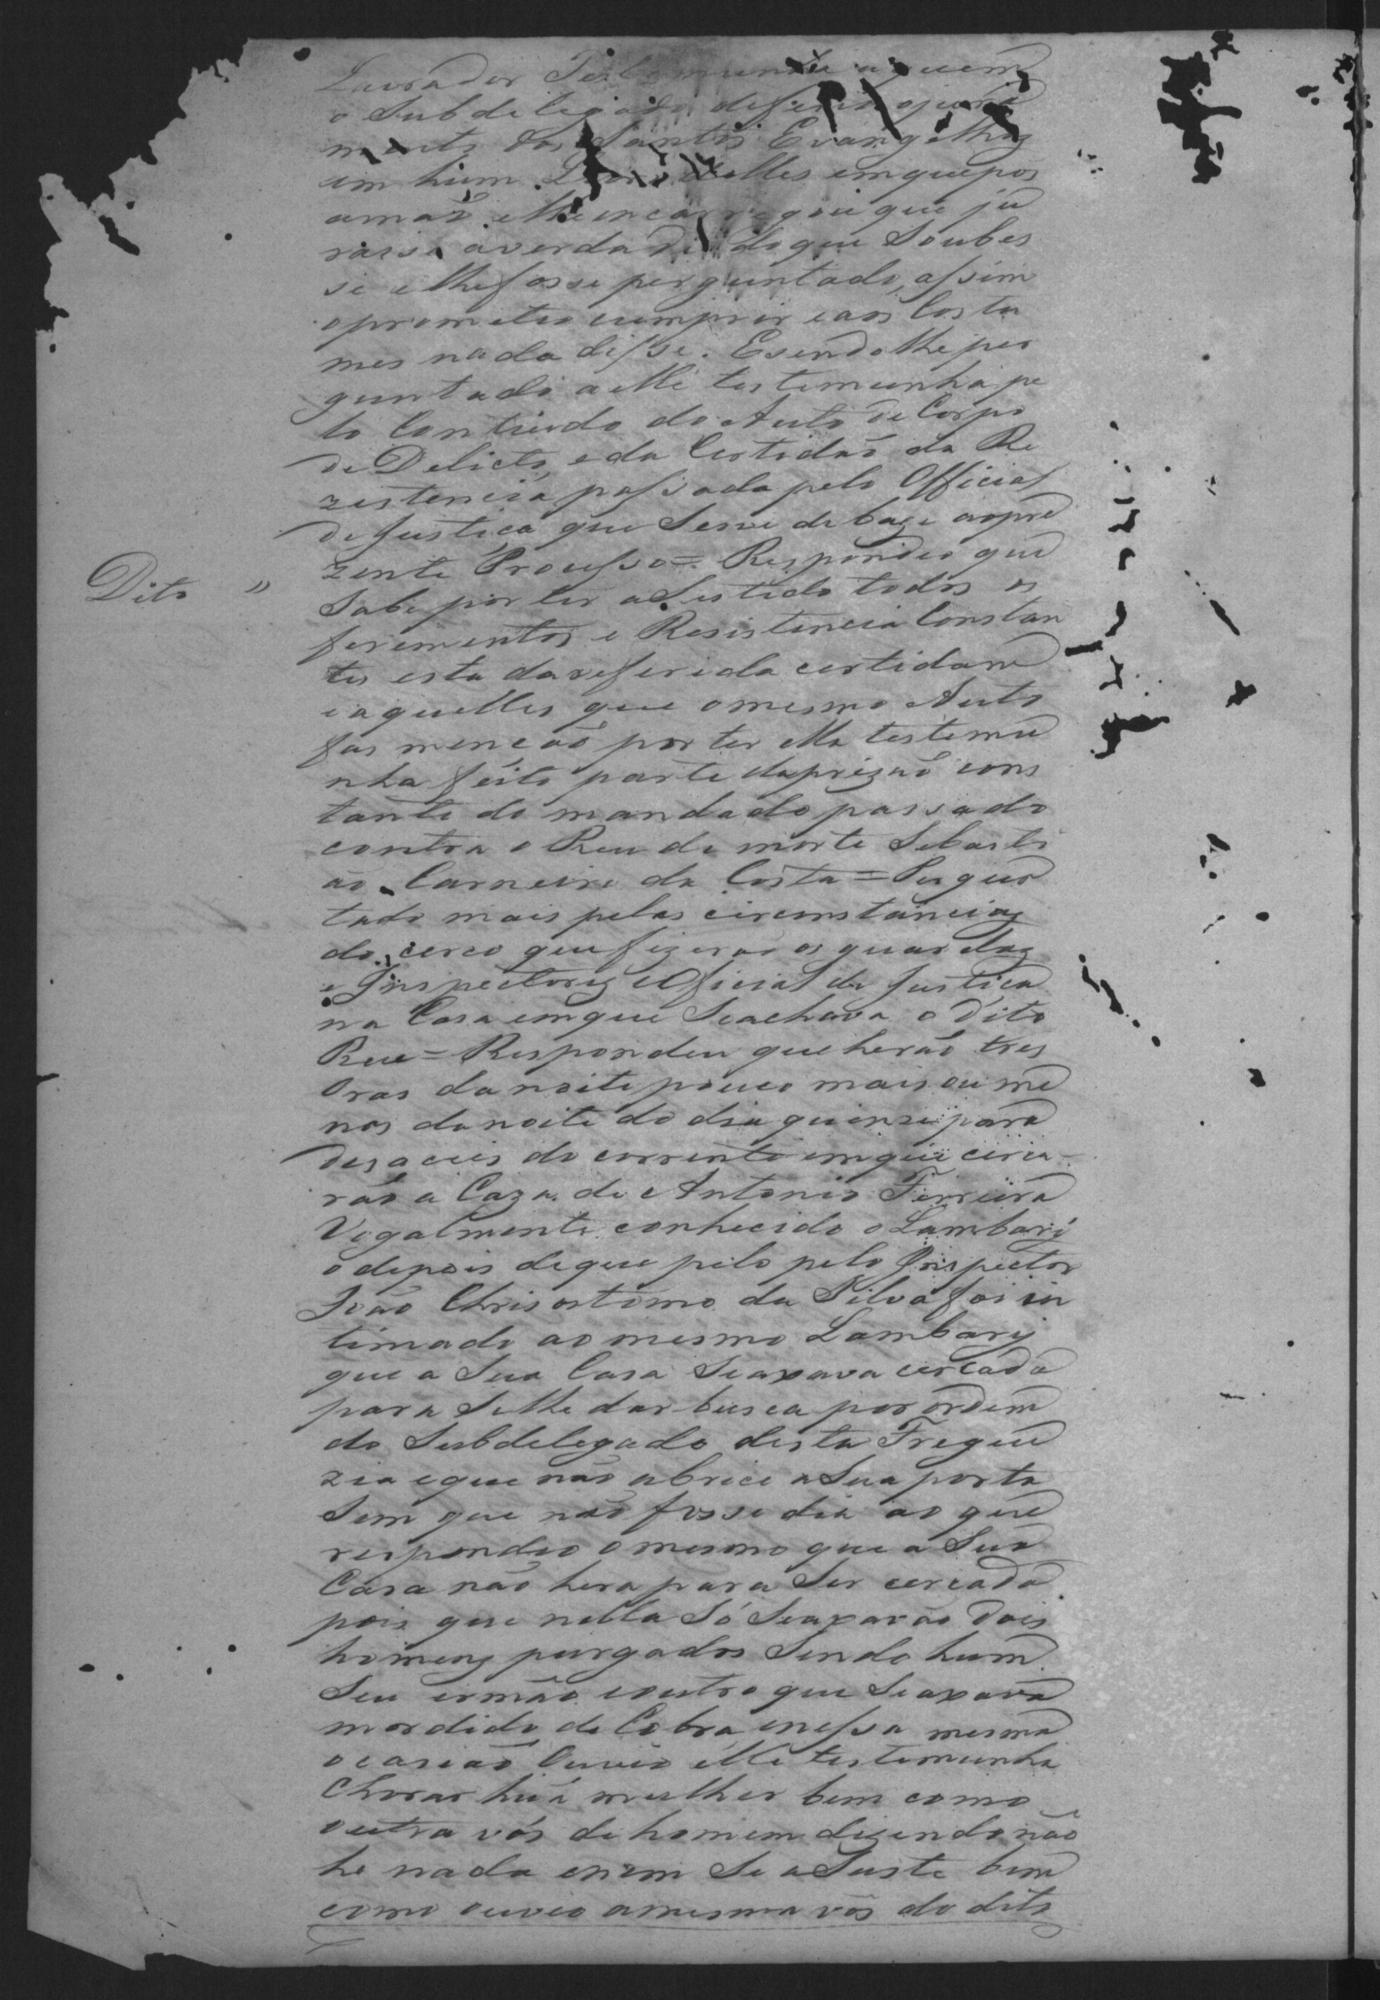 Lavrador Testemunha aquem
o Subdelegado deferio o jura
mento dos Santos Evangelhos
em hum Livro delles em que pos
a mão e lhe encarregou que ju
rasse a verdade do que Soubes
se e lhe fosse perguntado, assim
o prometeo cumprir e aos Costu
mes nada disse. E sendo lhe per
guntado a elle testemunha pe
lo Contiudo do Auto de Corpo
de Delicto, e da Certidaõ da Re
zistencia passada pelo Official
de Justica que Serve de baze ao pre
zente Processo = Respondeo que
Dito "
Sabe por ter aSestido todos os
ferimentos e Resistencia Constan
tes esta da referida certidam
e aquelles que o mesmo Auto
fas mencaõ por ter ella testemu
nha feito parte da prizaõ cons
tante do mandado passado
contra o Reu de morte Sebasti
ão Carneiro da Costa = Pergun
tado mais pelas circunstancias
do cerco que fizeraõ os guardas
e Inspectores e Oficial de Justica
na Casa em que Se achava o dito
Reu = Respondeu que heraõ tres
Oras da noite pouco mais ou me
nos da noite do dia quinze para
desaceis do corrente em que cerca
rão a Caza de Antonio Ferreira
Vogalmente conhecido o Lambarÿ
e depois de que pelo pelo Inspector
João Chrisostimo da Silva foi in
timado ao mesmo Lambary
que a Sua Casa Se axava cercada
para Se lhe dar busca por ordem
do Subdelegado desta Fregue
zia e que não abrice a Sua porta
Sem que não fosse dia ao que
respondeo o mesmo que a Sua
Casa não hera para Ser cercada
pois que nella Só Se axavão dois
homens purgados Sendo hum
Seu irmão e outro que Se axava
mordido de Cobra e nessa mesma
ocasiaõ Ouvio elle testemunha
Chorar huã mulher bem como
outra vós de homem dizendo não
he nada e nem Se aSuste bem
como ouvio a mesma vós do dito